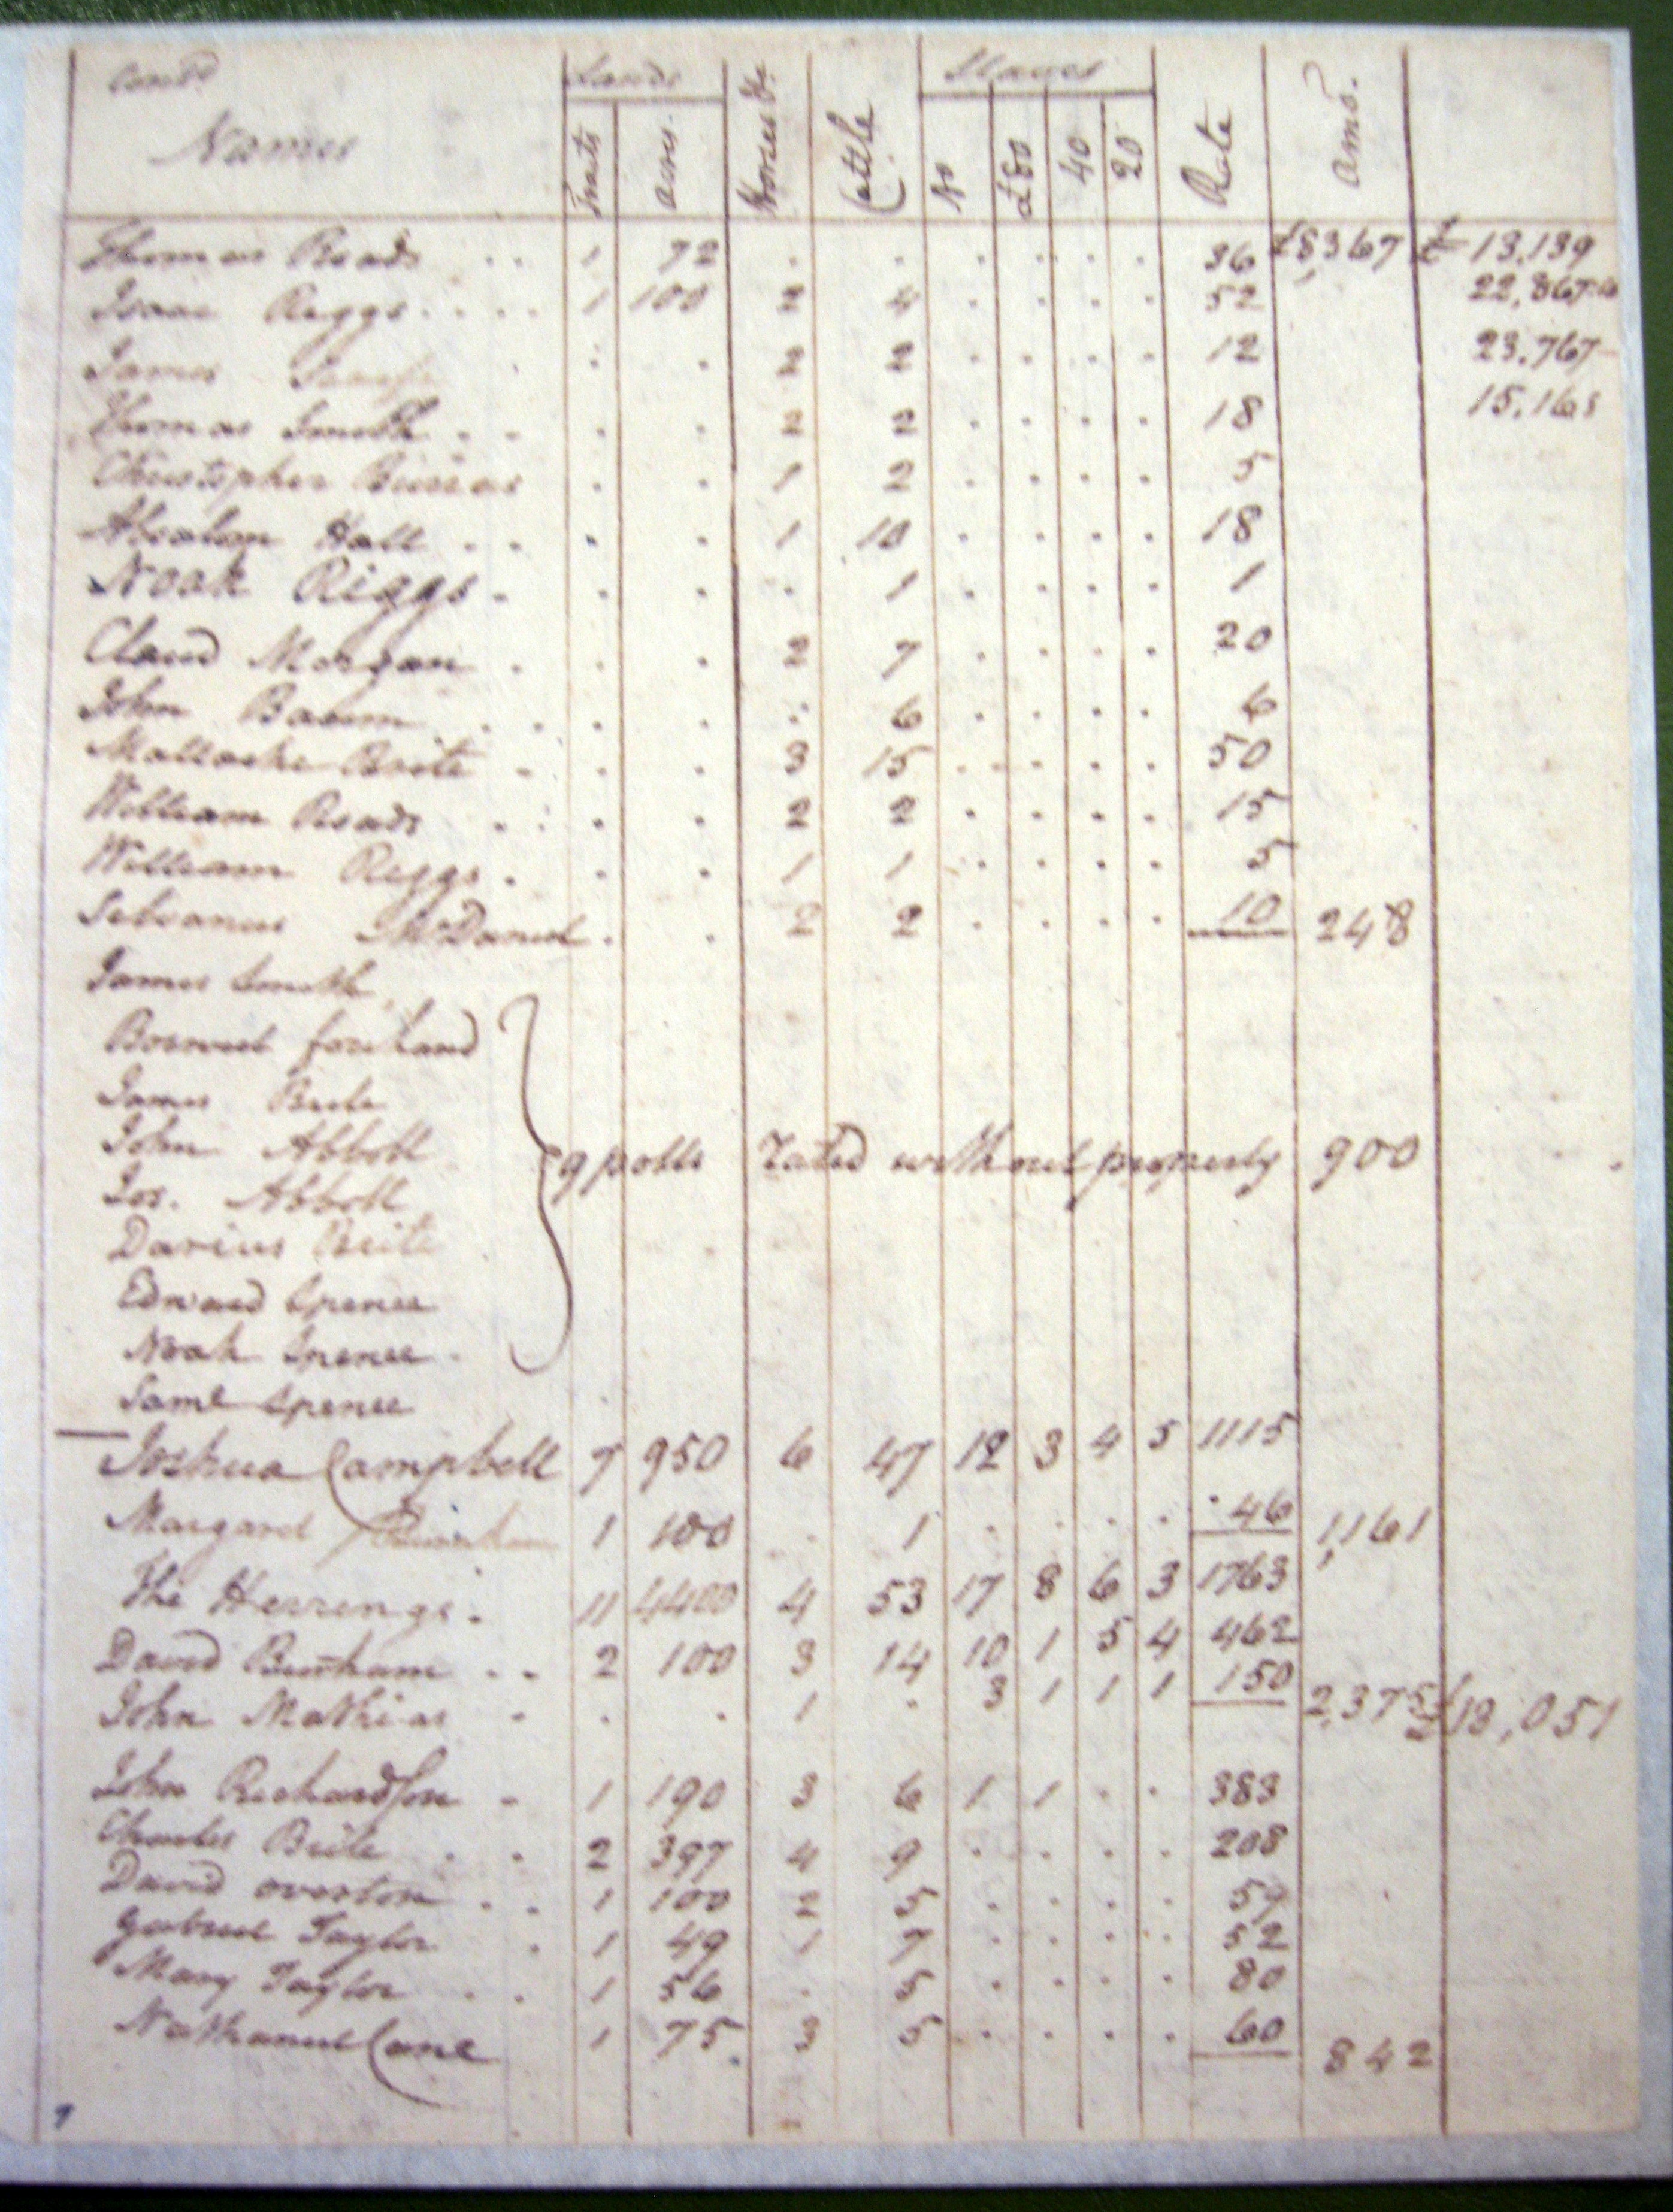 Contd. Lands Slaves
Names Tracts Acres. Horses &c. Cattle No £80 40 20 Rate Amo.
Thomas Roads . . 1 72 . . . . . . 36 £8,367 £13,139
Isaac Riggs . . . . 1 100 2 4 . . . . 52 22,867
James . . 2 2 . . . . 12 23,767
Thomas Smith . . . . 2 2 . . . . 18 15,168
Christopher . . 1 2 . . . . 5
Absalom Hall . . . . 1 10 . . . . 18
Noah Riggs . . . . 1 . . . . 1
Claud Morgan . . . 2 7 . . . . 20
John Baum . . . . . 6 . . . . 6
Mallache Brite . . . 3 15 . . . . 50
William Roads . . . . 2 2 . . . . 15
William Riggs . . . 1 1 . . . . 5
Silvanus McDaniel . . 2 2 . . . . 10 248
James Smith
forehand
James Brite
John Abbott
9 polls rated without property 900
Jos. Abbott
Darius Brite
Edward Spence
Noah Spence
Saml Spence
Joshua Campbell 7 950 6 47 12 3 4 5 1115
Margaret 1 100 . 1 . . . . 46 1,161
The Herrings . 11 4400 4 53 17 8 6 3 1763
David Burnham . . 2 100 3 14 10 1 5 4 462
John Mathias . . . 1 . 3 1 1 1 150 2,375 £13,051
John Richardson . 1 190 3 6 1 1 . . 383
Charles Brite . . 2 397 4 9 . . . . 208
David overton . . 1 100 2 5 . . . . 59
Gabriel Taylor . 1 49 1 7 . . . . 52
Mary Taylor . . 1 56 . 5 . . . . 80
Nathaniel Cane 1 75 3 5 . . . . 60 842